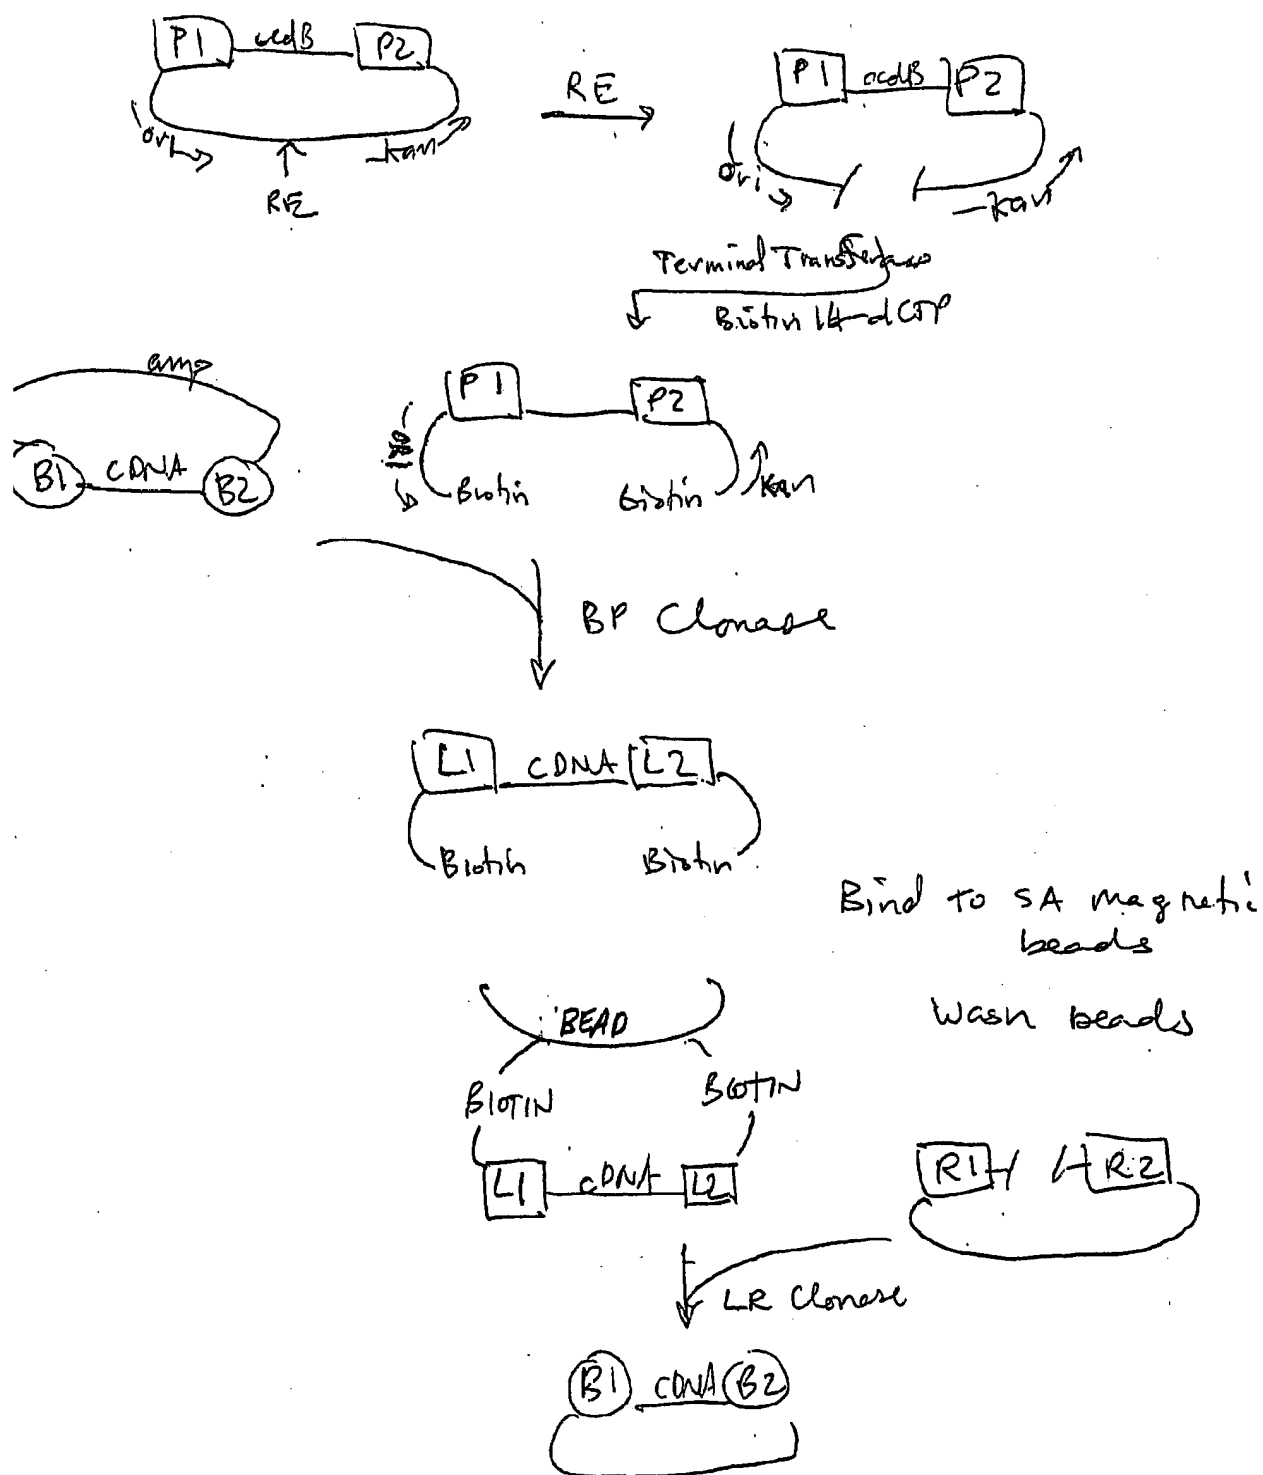 P1 ccdB P2
ori kan
RE
RE
P1 ccdB P2
ori kan
Terminal Transferase
Biotin 14-dCTP
amp
B1 cDNA B2
P1 P2
ori Biotin Biotin kan
BP Clonase
L1 cDNA L2
Biotin Biotin
Bind to SA magnetic
beads
Wash beads
BEAD
BIOTIN BIOTIN
L1 cDNA L2
R1 R2
LR Clonase
B1 cDNA B2